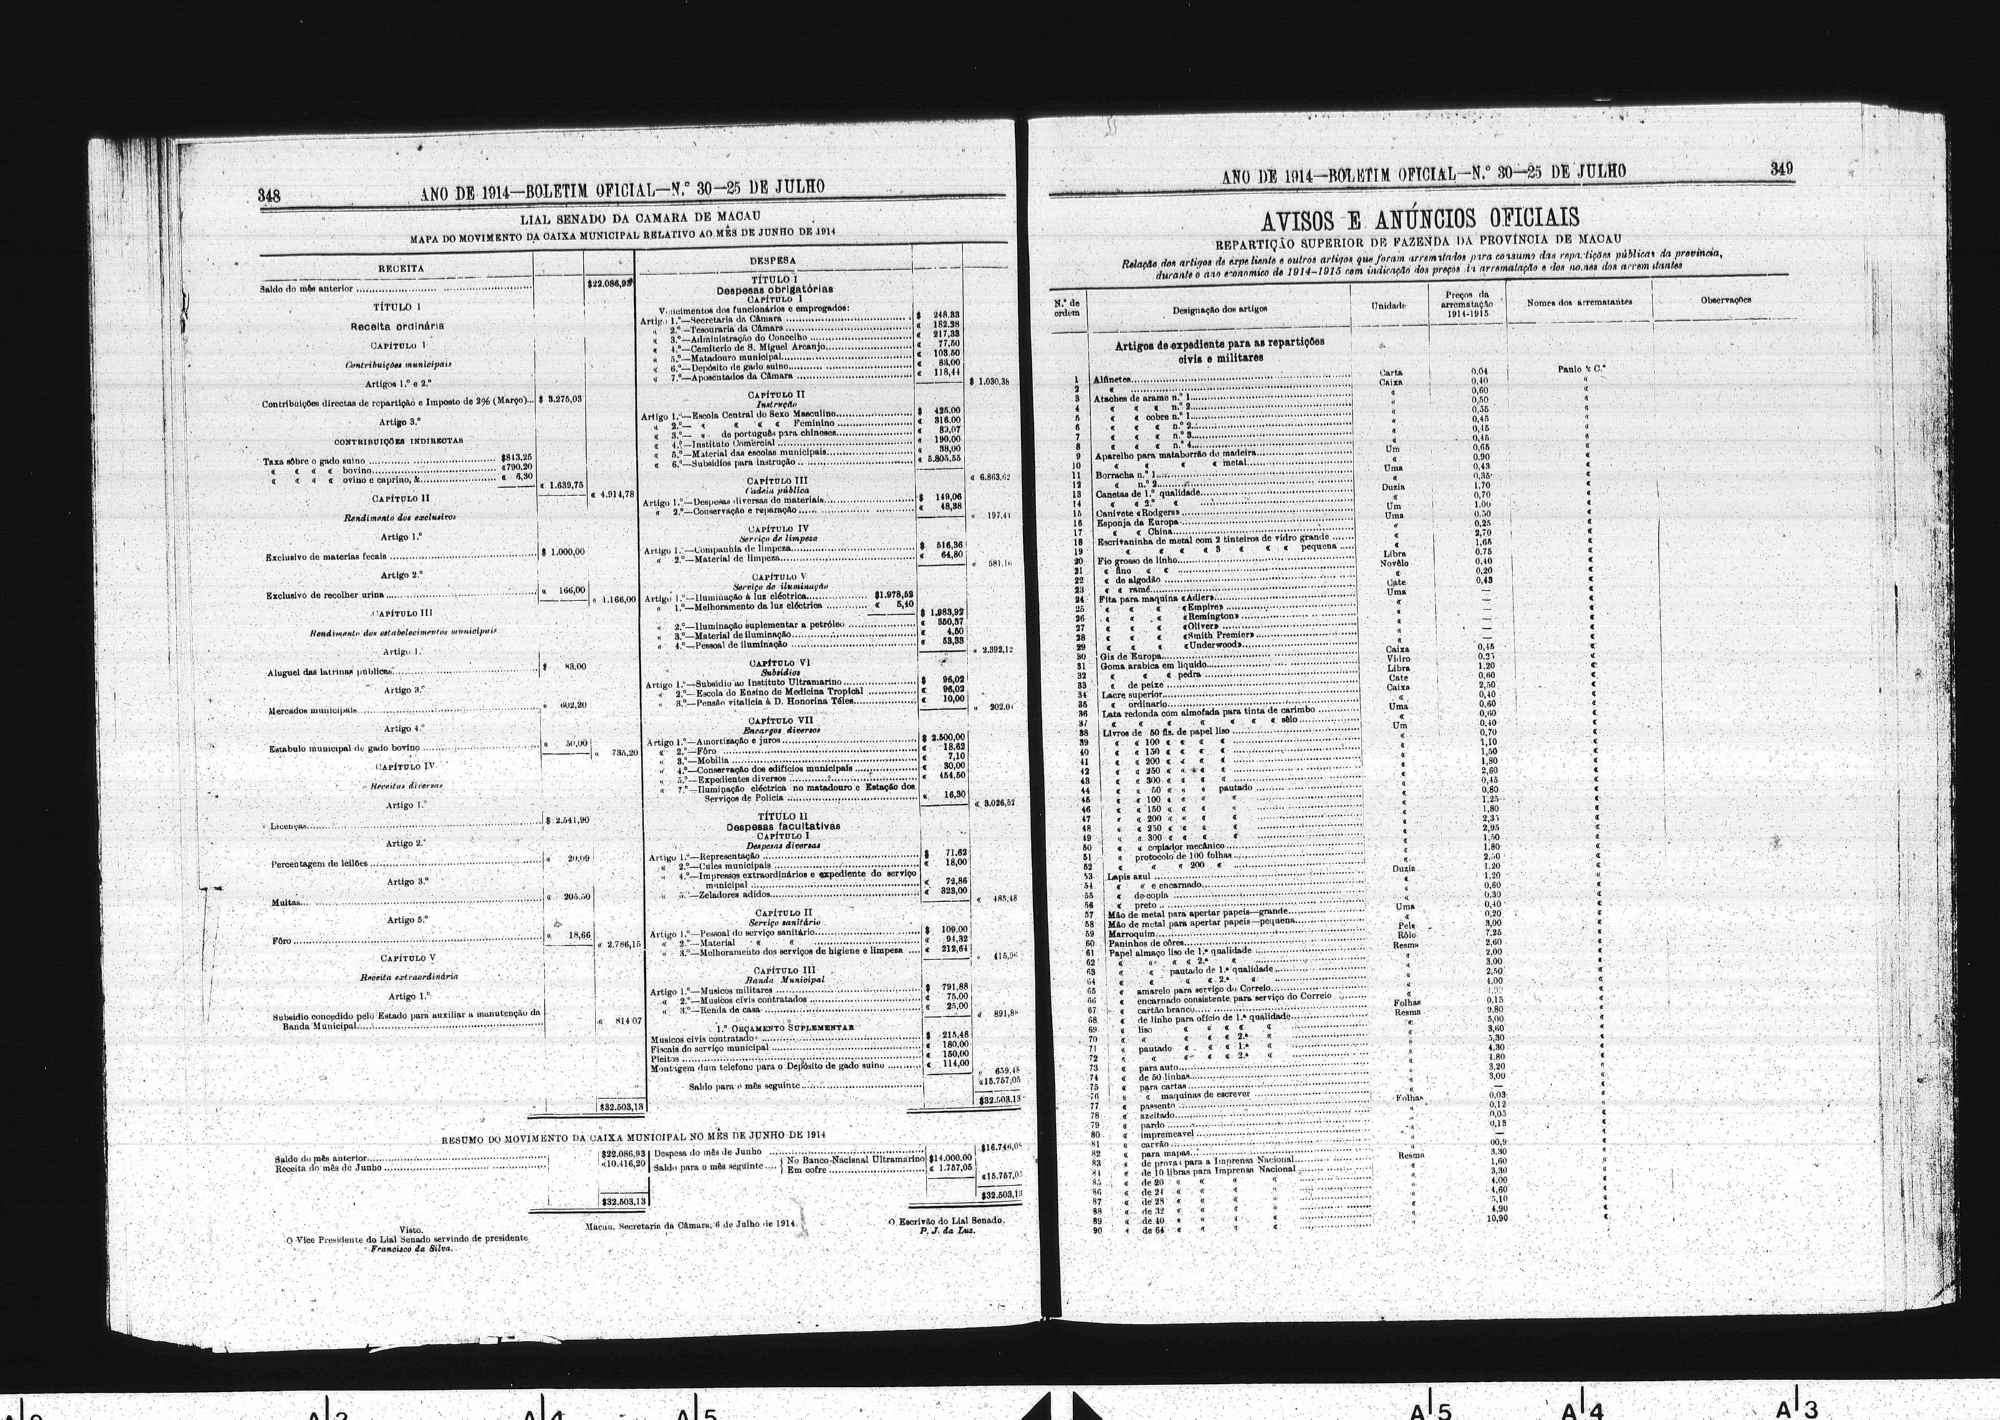 348
ANO DE 1914—BOLETIM OFICIAL—N.º 30—25 DE JULHO
LIAL SENADO DA CAMARA DE MACAU
MAPA DO MOVIMENTO DA CAIXA MUNICIPAL RELATIVO AO MÊS DE JUNHO DE 1914
RECEITA
Saldo do mês anterior $22.086,93
TÍTULO I
Receita ordinária
CAPÍTULO I
Contribuições municipais
Artigos 1.º e 2.º
Contribuições directas de repartição e Imposto de 2% (Março) $ 3.275,03
Artigo 3.º
CONTRIBUIÇÕES INDIRECTAS
Taxa sôbre o gado suino $843,25
« « « « bovino «790,20
« « « « ovino e caprino, &. « 6,30
« 1.639,75
« 4.914,78
CAPÍTULO II
Rendimento dos exclusivos
Artigo 1.º
Exclusivo de materias fecais $ 1.000,00
Artigo 2.º
Exclusivo de recolher urina « 166,00
« 1.166,00
CAPÍTULO III
Rendimento dos estabelecimentos municipais
Artigo 1.º
Aluguel das latrinas públicas $ 83,00
Artigo 3.º
Mercados municipais « 602,20
Artigo 4.º
Estabulo municipal de gado bovino « 50,00
« 735,20
CAPÍTULO IV
Receitas diversas
Artigo 1.º
Licenças $ 2.541,90
Artigo 2.º
Percentagem de leilões « 20,09
Artigo 3.º
Multas « 205,50
Artigo 5.º
Fôro « 18,66
« 2.786,15
CAPÍTULO V
Receita extraordinária
Artigo 1.º
Subsidio concedido pelo Estado para auxiliar a manutenção da
Banda Municipal « 814 07
$32.503,13
DESPESA
TÍTULO I
Despesas obrigatórias
CAPÍTULO I
Vencimentos dos funcionários e empregados:
Artigo 1.º—Secretaria da Câmara $ 248,33
« 2.º—Tesouraria da Câmara « 182,38
« 3.º—Administração do Concelho « 217,33
« 4.º—Cemiterio de S. Miguel Arcanjo « 77,50
« 5.º—Matadouro municipal « 103,50
« 6.º—Depósito de gado suino « 83,00
« 7.º—Aposentados da Câmara « 118,44
$ 1.030,38
CAPÍTULO II
Instrução
Artigo 1.º—Escola Central do Sexo Masculino $ 425,00
« 2.º— « « « « Feminino « 316,00
« 3.º— « de português para chineses
« 4.º—Instituto Comercial « 190,00
« 5.º—Material das escolas municipais « 38,00
« 6.º—Subsidios para instrução « 5.805,55
« 6.863,62
CAPÍTULO III
Cadeia pública
Artigo 1.º—Despesas diversas de materiais $ 149,06
« 2.º—Conservação e reparação « 48,38
« 197,44
CAPÍTULO IV
Serviço de limpeza
Artigo 1.º—Companhia de limpeza $ 516,36
« 2.º—Material de limpeza « 64,80
« 581,16
CAPÍTULO V
Serviço de iluminação
Artigo 1.º—Iluminação à luz eléctrica $1.978,52
« 1.º—Melhoramento da luz eléctrica « 5,40
$ 1.983,92
« 2.º—Iluminação suplementar a petróleo « 350,37
« 3.º—Material de iluminação « 4,50
« 4.º—Pessoal de iluminação « 53,33
« 2.392,12
CAPÍTULO VI
Subsidios
Artigo 1.º—Subsidio ao Instituto Ultramarino $ 96,02
« 2.º—Escola do Ensino de Medicina Tropical « 96,02
« 3.º—Pensão vitalicia à D. Honorina Téles « 10,00
« 202,04
CAPÍTULO VII
Encargos diversos
Artigo 1.º—Amortização e juros $ 2.500,00
« 2.º—Fôro « 18,62
« 3.º—Mobilia « 7,10
« 4.º—Conservação dos edificios municipais « 30,00
« 5.º—Expedientes diversos « 454,50
« 7.º—Iluminação eléctrica no matadouro e Estação dos
Serviços de Policia « 16,30
« 3.026,52
TÍTULO II
Despesas facultativas
CAPÍTULO I
Despesas diversas
Artigo 1.º—Representação $ 71,62
« 2.º—Cules municipais « 18,00
« 4.º—Impressos extraordinários e expediente do serviço
municipal « 72,86
« 5.º—Zeladores adidos « 323,00
« 485,48
CAPÍTULO II
Serviço sanitário
Artigo 1.º—Pessoal do serviço sanitário $ 109,00
« 2.º—Material « « « 94,32
« 3.º—Melhoramento dos serviços de higiene e limpesa « 212,64
« 415,96
CAPÍTULO III
Banda Municipal
Artigo 1.º—Musicos militares $ 791,88
« 2.º—Musicos civis contratados « 75,00
« 3.º—Renda de casa « 25,00
« 891,88
1.º ORÇAMENTO SUPLEMENTAR
Musicos civis contratados $ 215,48
Fiscais do serviço municipal « 180,00
Pleitos « 150,00
Montagem dum telefone para o Depósito de gado suino « 114,00
« 659,48
Saldo para o mês seguinte «15.757,05
$32.503,13
RESUMO DO MOVIMENTO DA CAIXA MUNICIPAL NO MÊS DE JUNHO DE 1914
Saldo do mês anterior $22.086,93
Receita do mês de Junho «10.416,20
$32.503,13
Despesa do mês de Junho $16.746,08
Saldo para o mês seguinte
No Banco Nacional Ultramarino $14.000,00
Em cofre « 1.757,05
«15.757,05
$32.503,13
Visto.
O Vice Presidente do Lial Senado servindo de presidente
Francisco da Silva.
Macau, Secretaria da Câmara, 6 de Julho de 1914.
O Escrivão do Lial Senado,
P. J. da Luz.
ANO DE 1914—BOLETIM OFICIAL—N.º 30—25 DE JULHO
349
AVISOS E ANÚNCIOS OFICIAIS
REPARTIÇÃO SUPERIOR DE FAZENDA DA PROVÍNCIA DE MACAU
Relação dos artigos de expediente e outros artigos que foram arrematados para consumo das repartições públicas da província,
durante o ano economico de 1914-1915 com indicação dos preços da arrematação e dos nomes dos arrematantes
N.º de ordem
Designação dos artigos
Unidade
Preços da arrematação 1914-1915
Nomes dos arrematantes
Observações
Artigos de expediente para as repartições
civis e militares
1 Alfinetes Carta 0,04 Paulo & C.ª
2 « Caixa 0,40 «
3 Ataches de arame n.º 1 « 0,60 «
4 « « « n.º 2 « 0,50 «
5 « « cobre n.º 1 « 0,35 «
6 « « « n.º 2 « 0,45 «
7 « « « n.º 3 « 0,45 «
8 « « « n.º 4 « 0,45 «
9 Aparelho para mataborrão do madeira Um 0,65 «
10 « « « « metal « 0,90 «
11 Borracha n.º 1 Uma 0,43 «
12 « n.º 2 « 0,35 «
13 Canetas de 1.ª qualidade Duzia 1,70 «
14 « « 2.ª « « 0,70 «
15 Canivete «Rodgers» Um 1,00 «
16 Esponja da Europa Uma 0,50 «
17 « « China « 0,25 «
18 Escrivaninha de metal com 2 tinteiros de vidro grande « 2,70 «
19 « « « « 3 « « « pequena « 1,65 «
20 Fio grosso de linho Libra 0,75 «
21 « fino « « Novêlo 0,40 «
22 « de algodão « 0,20 «
23 « « ramé Cate 0,43 «
24 Fita para maquina «Adler» Uma — «
25 « « « «Empire» « — «
26 « « « «Remington» « — «
27 « « « «Oliver» « — «
28 « « « «Smith Premier» « — «
29 « « « «Underwood» « — «
30 Gis de Europa Caixa 0,45 «
31 Goma arabica em liquido Vidro «
32 « « « pedra Libra 1,20 «
33 « de peixe Cate 0,60 «
34 Lacre superior Caixa 2,50 «
35 « ordinario « 0,40 «
36 Lata redonda com almofada para tinta de carimbo Uma 0,60 «
37 « « « « « « « sêlo « 0,60 «
38 Livros de 50 fls. de papel liso Um 0,40 «
39 « « 100 « « « « « 0,70 «
40 « « 150 « « « « « 1,10 «
41 « « 200 « « « « « 1,50 «
42 « « 250 « « « « « 1,80 «
43 « « 300 « « « « « 2,60 «
44 « « 50 « « « pautado « 0,45 «
45 « « 100 « « « « « 0,80 «
46 « « 150 « « « « « 1,25 «
47 « « 200 « « « « « 1,80 «
48 « « 250 « « « « « «
49 « « 300 « « « « « 2,95 «
50 « « copiador mecânico « 1,50 «
51 « protocolo de 100 folhas « 1,80 «
52 « « « 200 « « «
53 Lapis azul Duzia 1,20 «
54 « « e encarnado « 1,20 «
55 « de copia « 0,60 «
56 « preto « 0,30 «
57 Mão de metal para apertar papeis—grande Uma 0,40 «
58 Mão de metal para apertar papeis—pequena « 0,20 «
59 Marroquim Pele 3,00 «
60 Paninhos de côres Rôlo 7,25 «
61 Papel almaço liso de 1.ª qualidade Resma 2,60 «
62 « « « « 2.ª « « 2,00 «
63 « « pautado de 1.ª qualidade « 3,00 «
64 « « « « 2.ª « « 2,50 «
65 « amarelo para serviço do Correio « 4,00 «
66 « encarnado consistente para serviço do Correio « «
67 « cartão branco Folhas 0,15 «
68 « de linho para oficio de 1.ª qualidade Resma 9,80 «
69 « liso « « « « « « 5,00 «
70 « « « « « 2.ª « « 3,60 «
71 « pautado « « « 1.ª « « 5,30 «
72 « « « « « 2.ª « « 4,30 «
73 « para auto « 1,80 «
74 « de 50 linhas « 3,20 «
75 « para cartas « 3,00 «
76 « « maquinas de escrever « — «
77 « passento Folhas 0,03 «
78 « azeitado « 0,12 «
79 « pardo « 0,05 «
80 « impremeavel « «
81 « carvão « — «
82 « para mapas « «
83 « de provas para a Imprensa Nacional Resma 3,30 «
84 « de 10 libras para Imprensa Nacional « 1,60 «
85 « de 20 « « « « « 3,30 «
86 « de 24 « « « « « 4,00 «
87 « de 28 « « « « « 4,60 «
88 « de 32 « « « « « 5,10 «
89 « de 40 « « « « « 4,90 «
90 « de 64 « « « « « 10,90 «
A 2
A 4
A 5
A 5
A 4
A 3